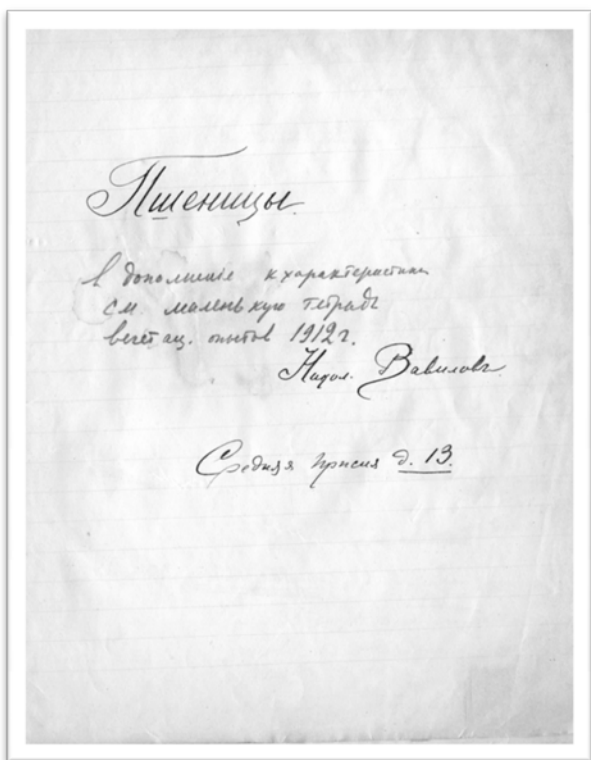 Пшеницы.
в дополненіе к характеристике
см. маленькую тетрадь
вегетац. опытов 1912 г.
Никол. Вавиловъ.
Средняя Пресня д. 13.